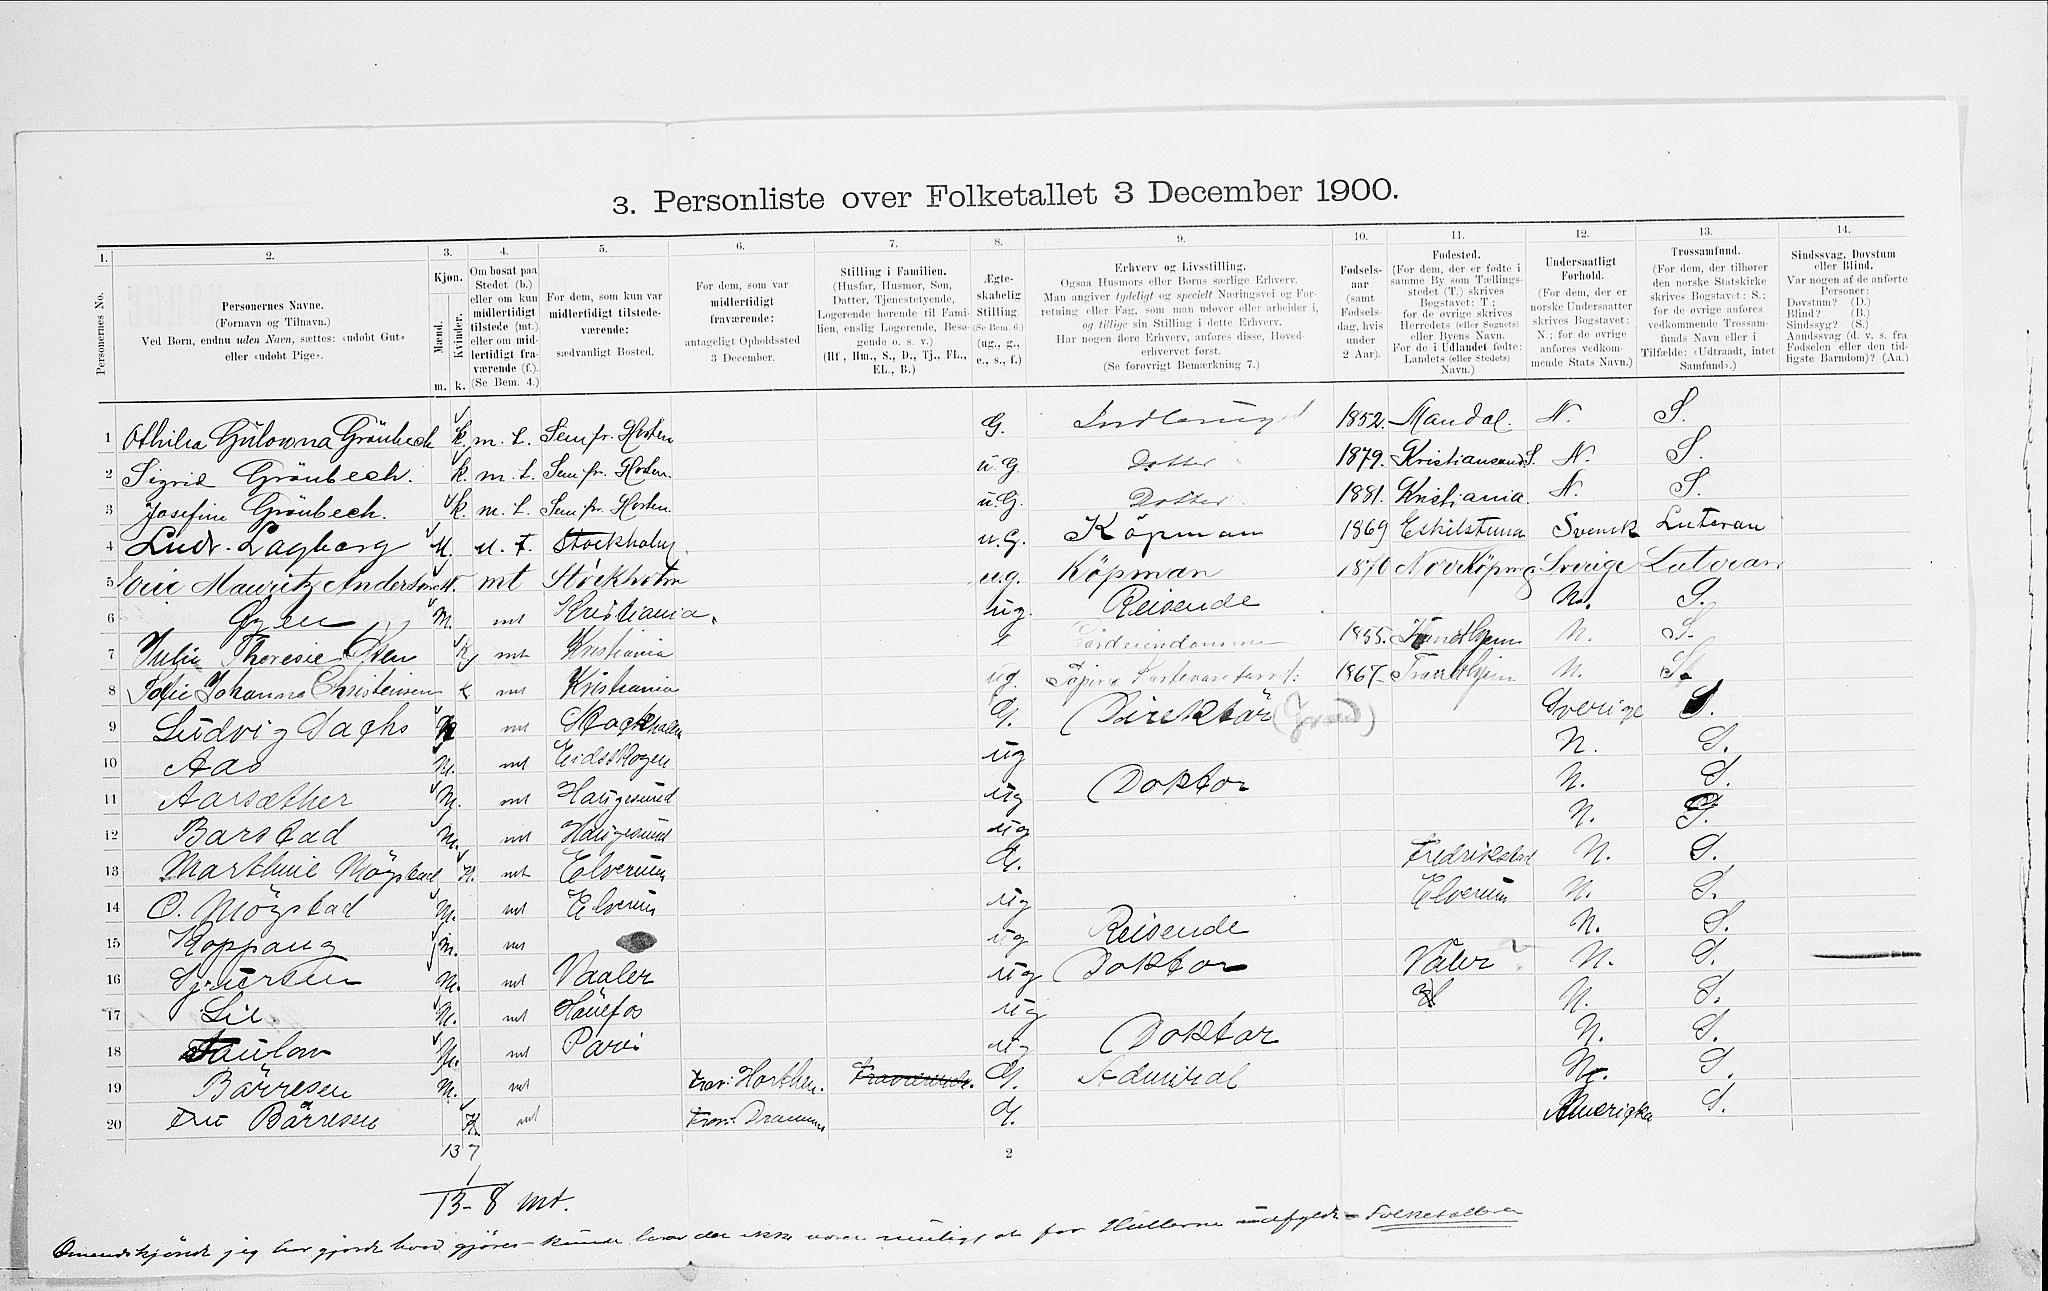 3. Personliste over Folketallet 3 December 1900.
1. 2. 3. 4. 5. 6. 7. 8. 9. 10. 11. 12. 13. 14.
Personernes No.
Personernes Navne.
(Fornavn og Tilnavn.)
Ved Børn, endnu uden Navn, sættes: «udøbt Gut»
eller «udøbt Pige».
Kjøn.
Mænd.
Kvinder.
m. k.
Om bosat paa
Stedet (b.)
eller om kun
midlertidigt
tilstede (mt.)
eller om mid-
lertidigt fra-
værende (f.).
(Se Bem. 4.)
For dem, som kun var
midlertidigt tilstede-
værende:
sædvanligt Bosted.
For dem, som var
midlertidigt
fraværende:
antageligt Opholdssted
3 December.
Stilling i Familien.
(Husfar, Husmor, Søn,
Datter, Tjenestetyende,
Logerende hørende til Fami-
lien, enslig Logerende, Besø-
gende o. s. v.)
(Hf, Hm., S., D., Tj., FL.,
EL., B.)
Ægte-
skabelig
Stilling.
(Se Bem. 6.)
(ug., g.,
e., s., f.)
Erhverv og Livsstilling.
Ogsaa Husmors eller Børns særlige Erhverv.
Man angiver tydeligt og specielt Næringsvei og For-
retning eller Fag, som man udøver eller arbeider i,
og tillige sin Stilling i dette Erhverv.
Har nogen flere Erhverv, anføres disse, Hoved-
erhvervet først.
(Se forøvrigt Bemærkning 7.)
Fødsels-
aar
(samt
Fødsels-
dag, hvis
under
2 Aar).
Fødested.
(For dem, der er fødte i
samme By som Tællings-
stedet (T.) skrives
Bogstavet: T.;
for de øvrige skrives
Herredets (eller Sognets)
eller Byens Navn.
For de i Udlandet fødte:
Landets (eller Stedets)
Navn.)
Undersaatligt
Forhold.
(For dem, der er
norske Undersaatter
skrives Bogstavet:
N.; for de øvrige
anføres vedkom-
mende Stats Navn.)
Trossamfund.
(For dem, der tilhører
den norske Statskirke
skrives Bogstavet: S.;
for de øvrige anføres
vedkommende Trossam-
funds Navn eller i
Tilfælde: «Udtraadt, intet
Samfund».)
Sindssvag, Døvstum
eller Blind.
Var nogen af de anførte
Personer:
Døvstum? (D.)
Blind? (B.)
Sindssyg? (S.)
Aandssvag (d. v. s. fra
Fødselen eller den tid-
ligste Barndom)? (Aa.)
1 Othilia Gülowna Grönbech k. m. t. Sem pr. Horten G. 1852. Mandal. N. S.
2 Sigrid Grönbech. k. m. t. Sem pr. Horten. u.G. Dotter 1879. Kristiansand S. N. S.
3 Josefine Grönbech. k. m. t. Sem pr. Horten. u.G. Dotter. 1881. Kristiania. N. S.
4 Ludv. Lagberg M. m. t. Stockholm. u.G. Köpman 1869 Eskilstuna Svensk Luteran
5 Mauritz Anderson M. mt Stockholm u.g. Köpman 1870 Norrköping Sverige Luteran
6 Øyen M. mt Kristiania. ug. Reisende N. S.
7 Julie Theresie K mt Kristiania e 1855. Trondhjem N. S.
8 Sofie Johanna Christensen k mt Kristiania ug. 1867. Trondhjem N. S.
9 Ludvig Sachs mt Stockholm G. Direktør Sverige S.
10 Aas M. mt Eidsskogen ug N. S.
11 Aarsæther M. mt Haugesund ug Doktor N. S.
12 Barstad M. mt Haugesund ug N. S.
13 Marthine Mögstad K. mt Elverum G. Fredrikstad N. S.
14 O. Mögstad M. mt Elverum ug Elverum N. S.
15 Koppang M. mt ug Reisende N. S.
16 M. mt Vaaler ug Doktor Valer N. S.
17 Lie. M. mt Hönefos ug N. S.
18 Paulow M. mt Paris ug Doktor N. S.
19 Börresen M. mt Horthen. G. Admiral N. S.
20 Fru Börresen K. mt Drammen G. Amerika S.
13 7 2
1
13 - 8 mt.
jeg har gjordt hvad gjöres kunde har der ikke været muligt at faa Hullerne udfyldt - Folketælleren